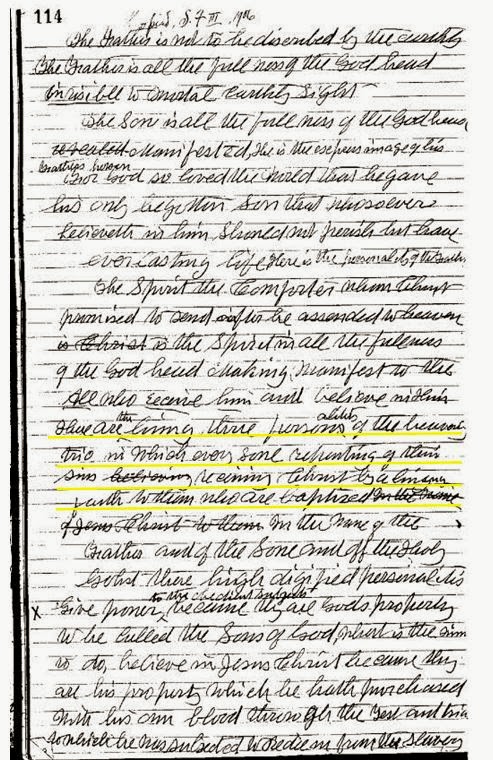 114 Copied S. F III 1906
The Father is not to be discribed by the earthly
The Father is all the full ness of the God head
invisible to mortal earthly sight
The Son is all the full ness of the God head
Manifested, He is the express image of his
Fathers person
For God so loved the world that he gave
his only begotten Son that whosoever
believeth in him Should not perish but have
ever lasting life Here is the personality of the Father
The Spirit the Comforter whom Christ
promised to send after he assended to heaven
is Christ is the Spirit in all the fullness
of the God head making manifest to the
All who receive him and believe in Him
There are the living three persons alities of the heavenly
trio in which every sone repenting of their
sins believing receiving Christ by a living
faith to them who are baptized in the name
of Jesus Christ to them In the name of the
Father and of the Sone and off the Holy
Gohst these high digified personalitis
to the obedient subjects
X Give power because they are Gods property
to be called the Sons of God, what is the sinn
to do, believe in Jesus Christ because they
are his property which he hath purchased
with his own blood through the test and trial
to which he was subjected to redeem from the slavery